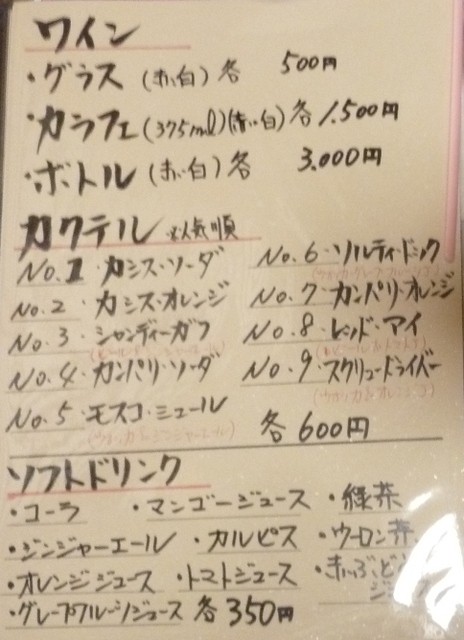 ワイン
・グラス (赤、白) 各 500円
・カラフェ (375ml) (赤、白) 各 1.500円
・ボトル (赤、白) 各 3.000円
カクテル ※人気順
No.1・カシス・ソーダ
No.2・カシス・オレンジ
No.3・シャンディーガフ
No.4・カンパリ・ソーダ
No.5・モスコ・ミュール
(ウオッカ&ジンジャーエール)
No.6・ソルティ・ドック
No.7・カンパリ・オレンジ
No.8・レッド・アイ
(ビール&トマトJ)
No.9・スクリュードライバー
(ウオッカ&オレンジJ)
各 600円
ソフトドリンク
・コーラ ・マンゴージュース ・緑茶
・ジンジャーエール ・カルピス ・ウーロン茶
・オレンジジュース ・トマトジュース ・赤ぶどう
・グレープフルーツジュース 各 350円